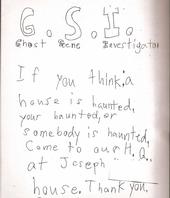 G. S. I.
Ghost Scene Investigator
If you think a
house is haunted,
your haunted, or
somebody is haunted,
Come to our H.Q.
at Joseph
house. Thank you.